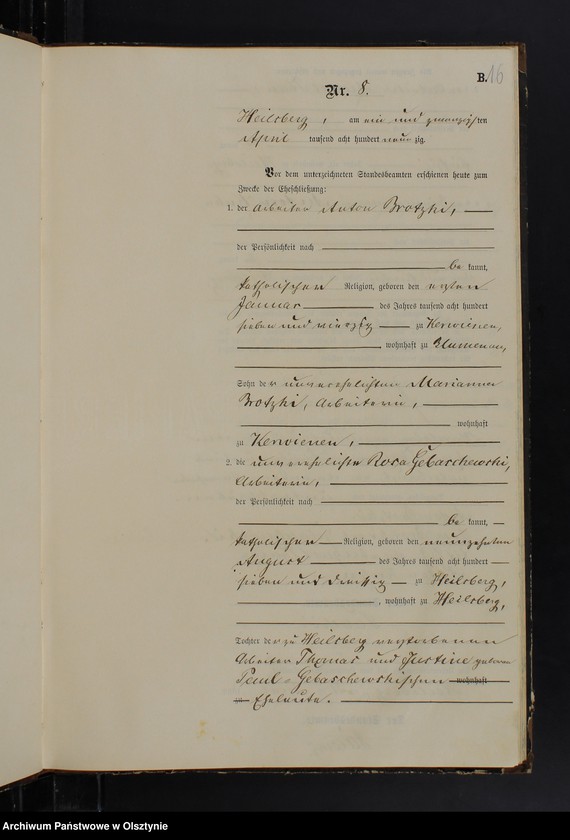 B. 16
Nr. 8.
Heilsberg, am ein und zwanzigsten
April tausend acht hundert neun zig.
Vor dem unterzeichneten Standesbeamten erschienen heute zum
Zwecke der Eheschließung:
1. der Arbeiter Anton Brotzki,
der Persönlichkeit nach
be kannt,
katholischer Religion, geboren den ersten
Januar des Jahres tausend acht hundert
sieben und vierzig zu Kerwienen,
, wohnhaft zu Blumenau,
Sohn der unverehelichten Marianna
Brotzki, Arbeiterin,
wohnhaft
zu Kerwienen,
2. die unverehelichte Rosa Gebaschewski,
Arbeiterin,
der Persönlichkeit nach
be kannt,
katholischer Religion, geboren den neunzehnten
August des Jahres tausend acht hundert
sieben und dreißig zu Heilsberg,
, wohnhaft zu Heilsberg,
Tochter der zu Heilsberg verstorbenen
Arbeiter Thomas und Justine geborene
Paul-Gebaschewskischen wohnhaft
zu Eheleute.
Archiwum Państwowe w Olsztynie